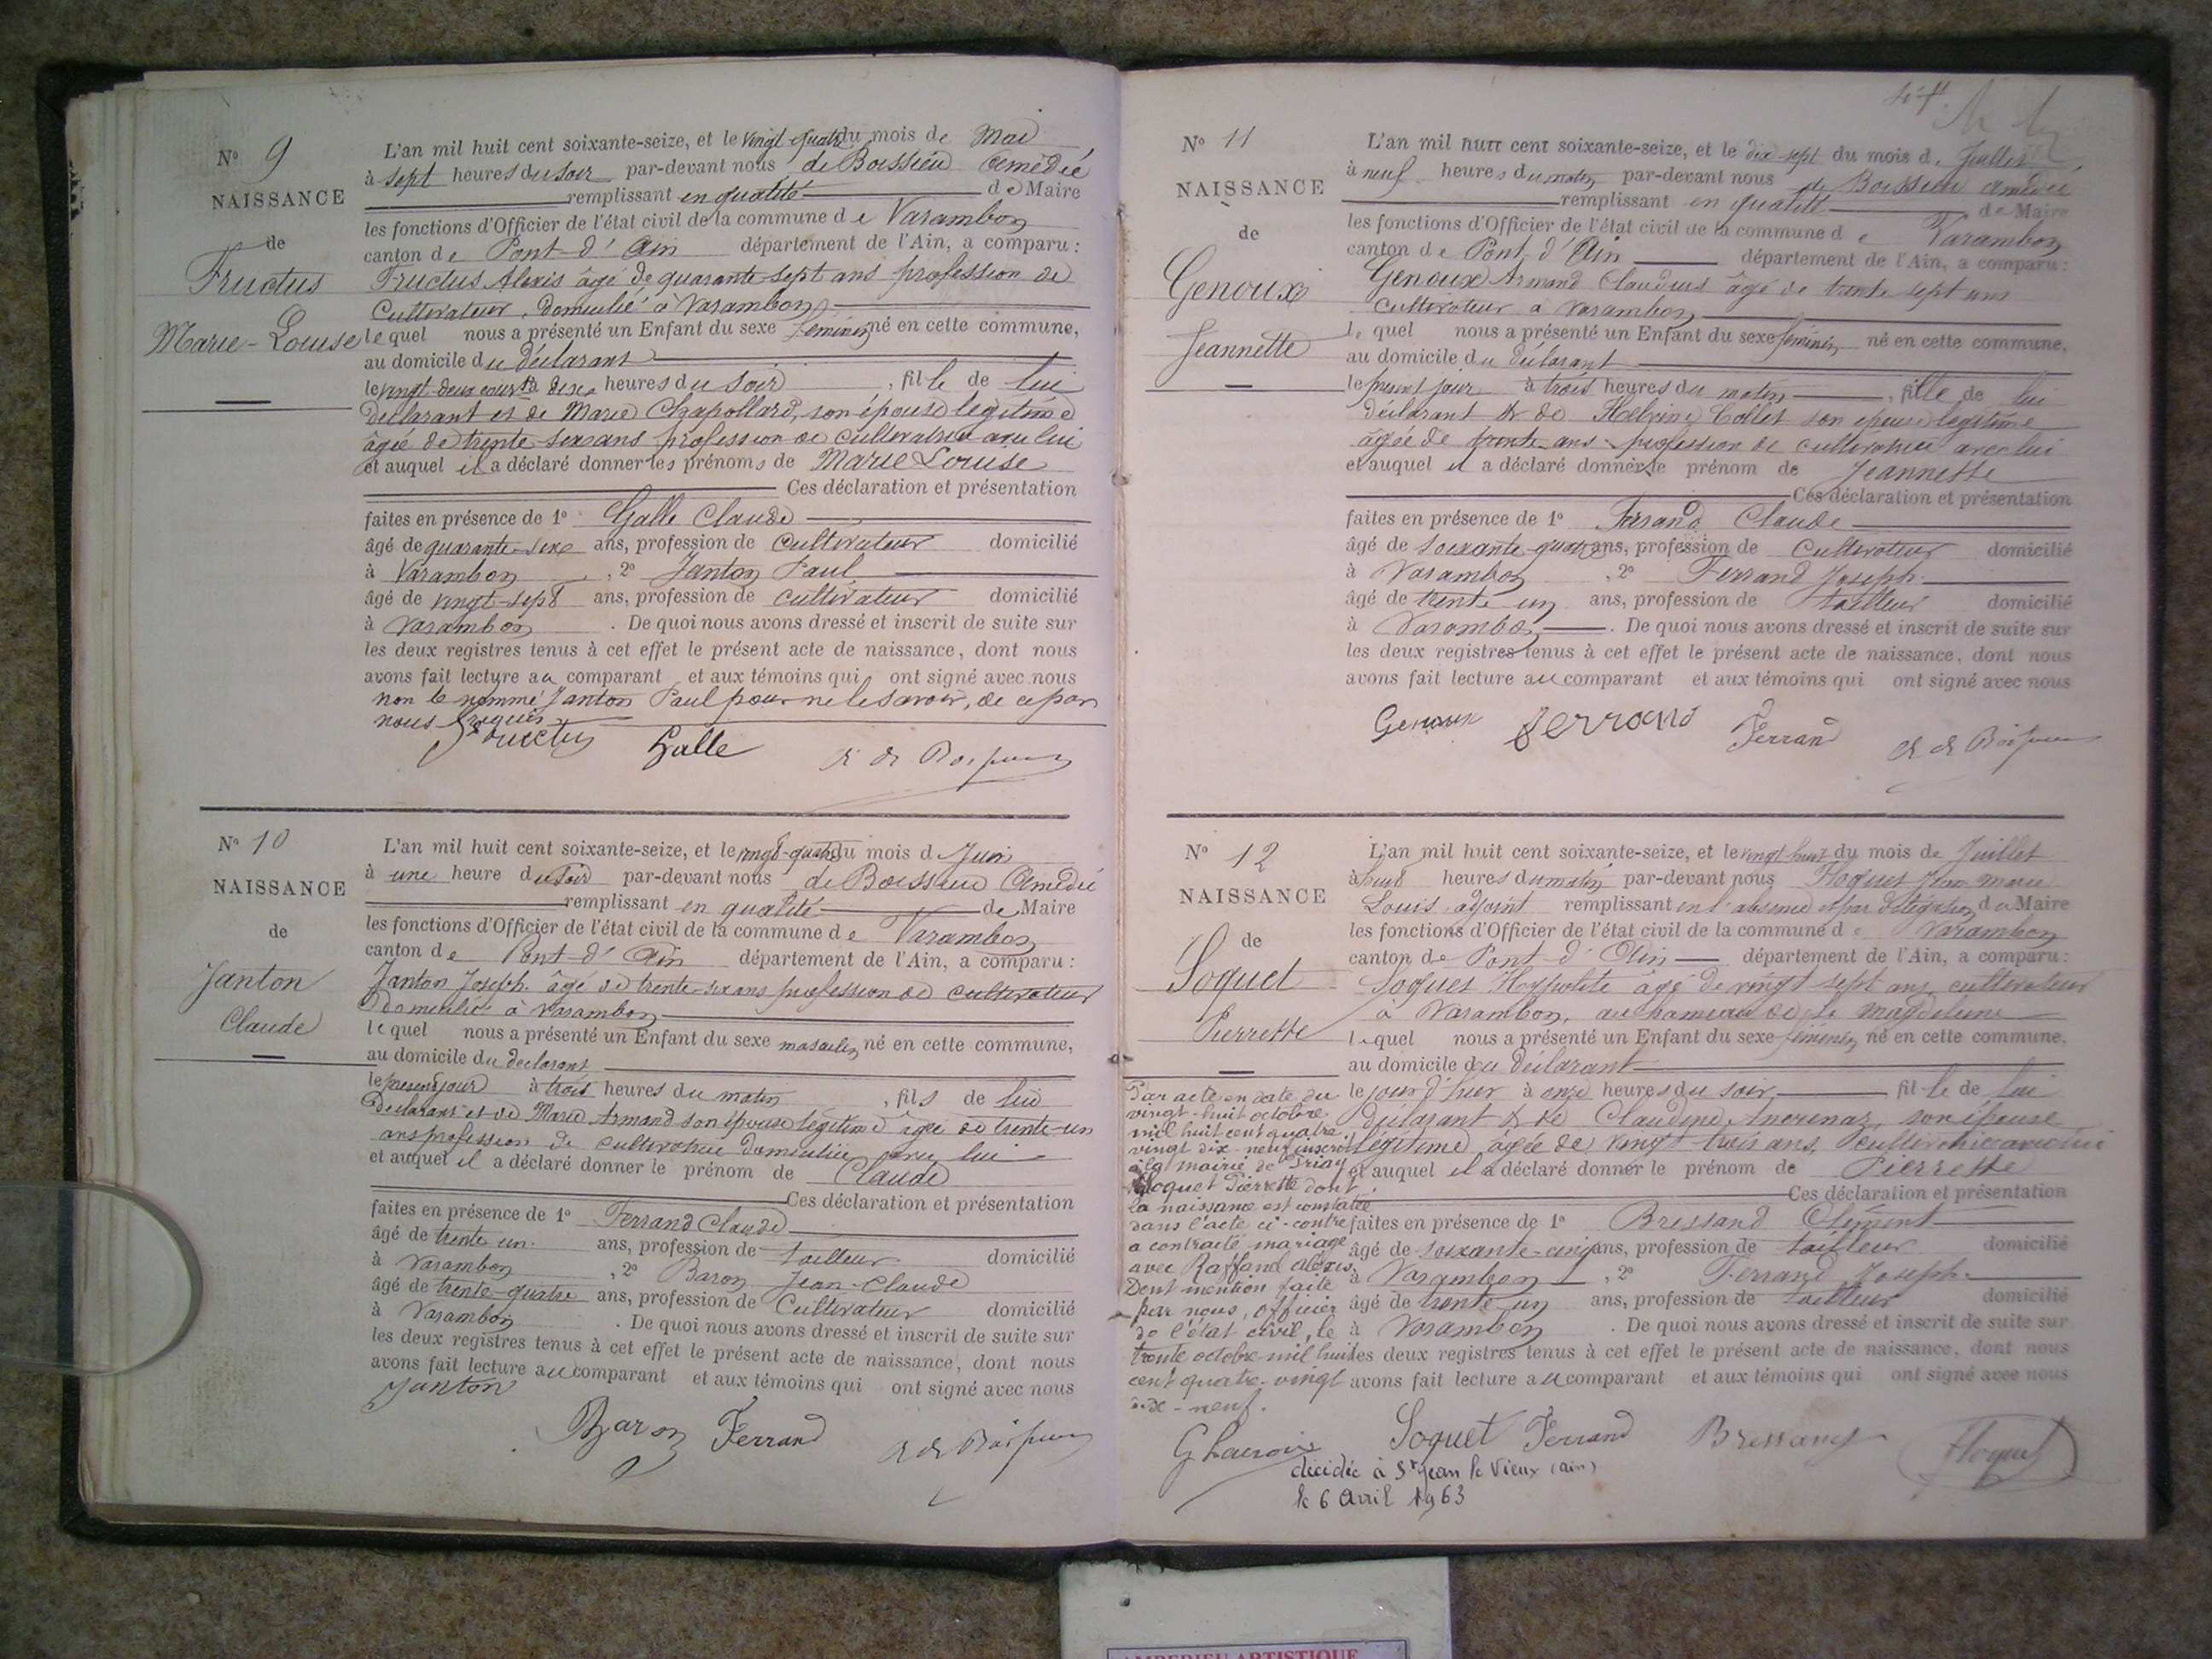 N° 9
NAISSANCE
de
Fructus
Marie-Louise
L'an mil huit cent soixante-seize, et le vingt quatre du mois de Mai
à sept heures du soir par-devant nous de Boissieu Amédée
remplissant en qualité de Maire
les fonctions d'Officier de l'état civil de la commune de Varambon
canton de Pont-d'Ain département de l'Ain, a comparu :
Fructus Alexis âgé de quarante-sept ans profession de
Cultivateur, domicilié à Varambon
lequel nous a présenté un Enfant du sexe féminin né en cette commune,
au domicile du déclarant
le vingt-deux courant à dix heures du soir, fille de lui
déclarant et de Marie Chapollard, son épouse légitime
âgée de trente-six ans profession de cultivatrice avec lui
et auquel il a déclaré donner les prénoms de Marie Louise
Ces déclaration et présentation
faites en présence de 1° Galle Claude
âgé de quarante-six ans, profession de Cultivateur domicilié
à Varambon, 2° Janton Paul
âgé de vingt-sept ans, profession de cultivateur domicilié
à Varambon. De quoi nous avons dressé et inscrit de suite sur
les deux registres tenus à cet effet le présent acte de naissance, dont nous
avons fait lecture au comparant et aux témoins qui ont signé avec nous
non le nommé Janton Paul pour ne le savoir, de ce par
nous requis
Fructus Galle
N° 10
NAISSANCE
de
Janton
Claude
L'an mil huit cent soixante-seize, et le vingt-quatre du mois de Juin
à une heure du soir par-devant nous de Boissieu Amédée
remplissant en qualité de Maire
les fonctions d'Officier de l'état civil de la commune de Varambon
canton de Pont-d'Ain département de l'Ain, a comparu :
Janton Joseph âgé de trente-six ans profession de cultivateur
domicilié à Varambon
lequel nous a présenté un Enfant du sexe masculin né en cette commune,
au domicile du déclarant
le présent jour à trois heures du matin, fils de lui
déclarant et de Marie Armand son épouse légitime âgée de trente-un
ans profession de cultivatrice domiciliée avec lui
et auquel il a déclaré donner le prénom de Claude
Ces déclaration et présentation
faites en présence de 1° Ferrand Claude
âgé de trente un ans, profession de tailleur domicilié
à Varambon, 2° Baron Jean-Claude
âgé de trente-quatre ans, profession de Cultivateur domicilié
à Varambon. De quoi nous avons dressé et inscrit de suite sur
les deux registres tenus à cet effet le présent acte de naissance, dont nous
avons fait lecture au comparant et aux témoins qui ont signé avec nous
Janton
Baron Ferrand
N° 11
NAISSANCE
de
Genoux
Jeannette
L'an mil huit cent soixante-seize, et le dix-sept du mois de Juillet
à neuf heures du matin par-devant nous de Boissieu Amédée
remplissant en qualité de Maire
les fonctions d'Officier de l'état civil de la commune de Varambon
canton de Pont d'Ain département de l'Ain, a comparu :
Genoux Armand Claudius âgé de trente sept ans
cultivateur à Varambon
lequel nous a présenté un Enfant du sexe féminin né en cette commune,
au domicile du déclarant
le présent jour à trois heures du matin, fille de lui
déclarant & de Collet son épouse légitime
âgée de trente ans profession de cultivatrice avec lui
et auquel il a déclaré donner le prénom de Jeannette
Ces déclaration et présentation
faites en présence de 1° Ferrand Claude
âgé de soixante-quatre ans, profession de Cultivateur domicilié
à Varambon, 2° Ferrand Joseph
âgé de trente un ans, profession de tailleur domicilié
à Varambon. De quoi nous avons dressé et inscrit de suite sur
les deux registres tenus à cet effet le présent acte de naissance, dont nous
avons fait lecture au comparant et aux témoins qui ont signé avec nous
Genoux Ferrand Ferrand
N° 12
NAISSANCE
de
Soquet
Pierrette
L'an mil huit cent soixante-seize, et le vingt huit du mois de Juillet
à huit heures du matin par-devant nous Floquet Jean Marie
Louis adjoint remplissant en l'absence et par délégation du Maire
les fonctions d'Officier de l'état civil de la commune de Varambon
canton de Pont-d'Ain département de l'Ain, a comparu :
Soquet Hypolite âgé de vingt sept ans, cultivateur
à Varambon, au hameau de la Magdeleine
lequel nous a présenté un Enfant du sexe féminin né en cette commune,
au domicile du déclarant
le jour d'hier à onze heures du soir, fille de lui
déclarant & de Claudine son épouse
légitime âgée de vingt trois ans, cultivatrice avec lui
et auquel il a déclaré donner le prénom de Pierrette
Ces déclaration et présentation
faites en présence de 1° Bressand Clément
âgé de soixante-cinq ans, profession de tailleur domicilié
à Varambon, 2° Ferrand Joseph
âgé de trente un ans, profession de tailleur domicilié
à Varambon. De quoi nous avons dressé et inscrit de suite sur
les deux registres tenus à cet effet le présent acte de naissance, dont nous
avons fait lecture au comparant et aux témoins qui ont signé avec nous
Soquet Ferrand Bressand Floquet
Par acte en date du
vingt-huit octobre
mil huit cent quatre
vingt dix-neuf inscrit
à la mairie de Priay
Soquet Pierrette dont
la naissance est constatée
dans l'acte ci-contre
a contracté mariage
avec Raffand Alexis.
Dont mention faite
par nous, officier
de l'état civil, le
trente octobre mil huit
cent quatre-vingt
dix-neuf.
G Lacroix
décédée à St Jean le Vieux (ain)
le 6 Avril 1963